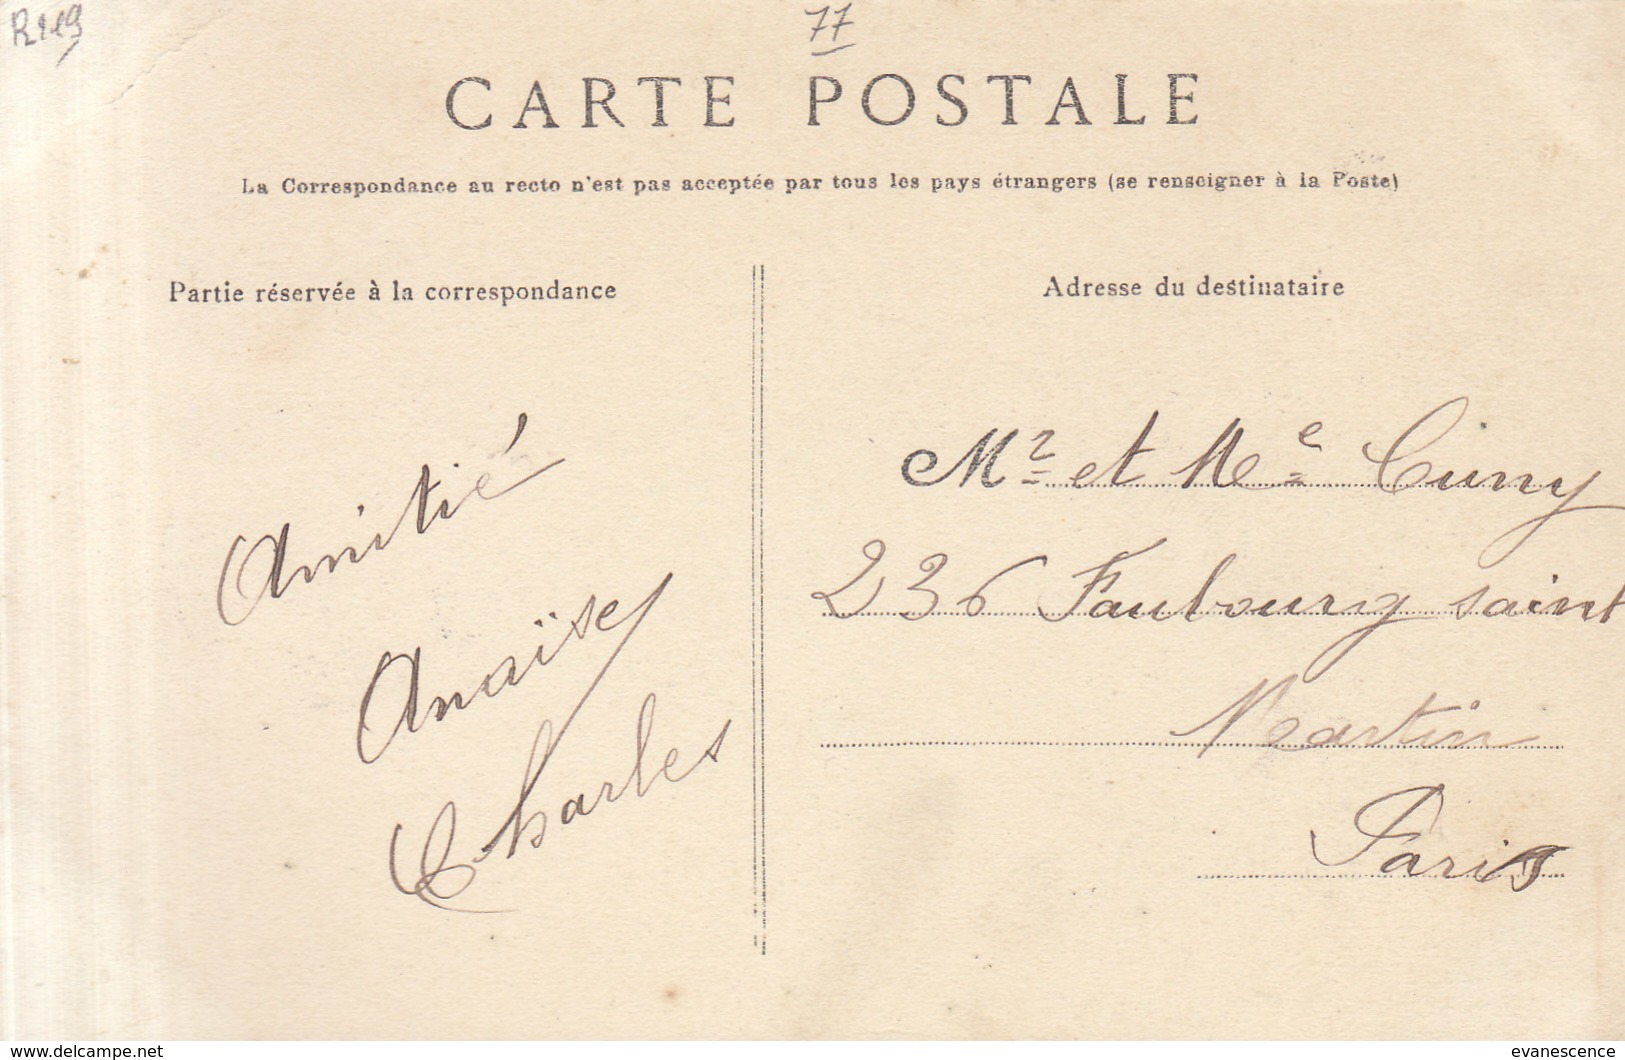 R119
77
CARTE POSTALE
La Correspondance au recto n'est pas acceptée par tous les pays étrangers (se renseigner à la Poste)
Partie réservée à la correspondance
Amitié
Anaïse
Charles
Adresse du destinataire
Mr et Me Cuny
236 Faubourg saint
Martin
Paris
www.delcampe.net
evanescence